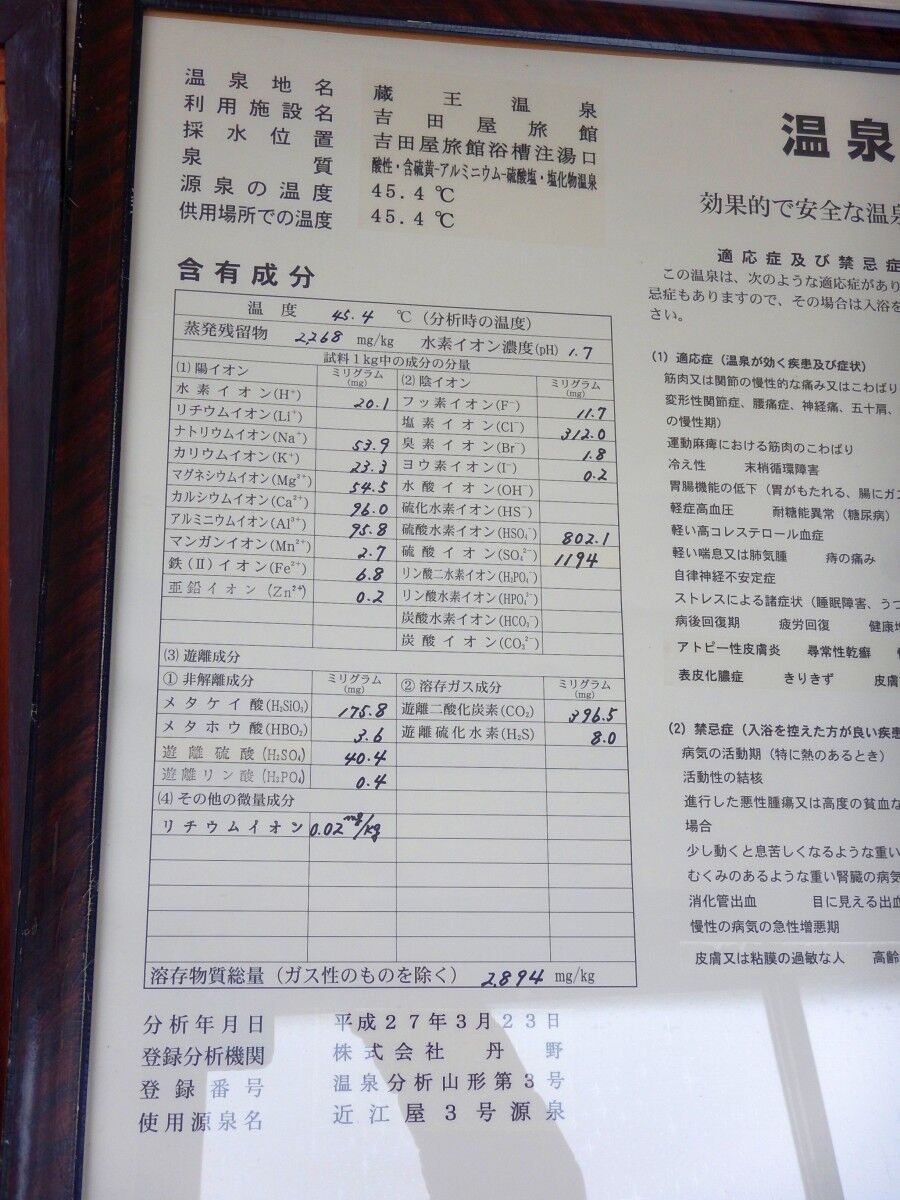 温泉地名 蔵王温泉
利用施設名 吉田屋旅館
採水位置 吉田屋旅館浴槽注湯口
泉質 酸性・含硫黄-アルミニウム-硫酸塩・塩化物温泉
源泉の温度 45.4℃
供用場所での温度 45.4℃
含有成分
温度 45.4 ℃(分析時の温度)
蒸発残留物 2268 mg/kg 水素イオン濃度(pH) 1.7
試料1kg中の成分の分量
(1) 陽イオン ミリグラム(mg) (2) 陰イオン ミリグラム(mg)
水素イオン(H⁺) 20.1 フッ素イオン(F⁻) 11.7
リチウムイオン(Li⁺) 塩素イオン(Cl⁻) 312.0
ナトリウムイオン(Na⁺) 53.9 臭素イオン(Br⁻) 1.8
カリウムイオン(K⁺) 23.3 ヨウ素イオン(I⁻) 0.2
マグネシウムイオン(Mg²⁺) 54.5 水酸イオン(OH⁻)
カルシウムイオン(Ca²⁺) 96.0 硫化水素イオン(HS⁻)
アルミニウムイオン(Al³⁺) 95.8 硫酸水素イオン(HSO₄⁻) 802.1
マンガンイオン(Mn²⁺) 2.7 硫酸イオン(SO₄²⁻) 1194
鉄(II)イオン(Fe²⁺) 6.8 リン酸二水素イオン(H₂PO₄⁻)
亜鉛イオン(Zn²⁺) 0.2 リン酸水素イオン(HPO₄²⁻)
炭酸水素イオン(HCO₃⁻)
炭酸イオン(CO₃²⁻)
(3) 遊離成分
① 非解離成分 ミリグラム(mg) ② 溶存ガス成分 ミリグラム(mg)
メタケイ酸(H₂SiO₃) 175.8 遊離二酸化炭素(CO₂) 396.5
メタホウ酸(HBO₂) 3.6 遊離硫化水素(H₂S) 8.0
遊離硫酸(H₂SO₄) 40.4
遊離リン酸(H₃PO₄) 0.4
(4) その他の微量成分
リチウムイオン 0.02mg/kg
溶存物質総量(ガス性のものを除く) 2894 mg/kg
分析年月日 平成27年3月23日
登録分析機関 株式会社 丹野
登録番号 温泉分析山形第3号
使用源泉名 近江屋3号源泉
温泉
効果的で安全な温泉
適応症及び禁忌症
この温泉は、次のような適応症があり
忌症もありますので、その場合は入浴を
さい。
(1) 適応症(温泉が効く疾患及び症状)
筋肉又は関節の慢性的な痛み又はこわばり
変形性関節症、腰痛症、神経痛、五十肩、
の慢性期)
運動麻痺における筋肉のこわばり
冷え性 末梢循環障害
胃腸機能の低下(胃がもたれる、腸にガス
軽症高血圧 耐糖能異常(糖尿病)
軽い高コレステロール血症
軽い喘息又は肺気腫 痔の痛み
自律神経不安定症
ストレスによる諸症状(睡眠障害、うつ
病後回復期 疲労回復 健康増
アトピー性皮膚炎 尋常性乾癬
表皮化膿症 きりきず 皮膚
(2) 禁忌症(入浴を控えた方が良い疾患
病気の活動期(特に熱のあるとき)
活動性の結核
進行した悪性腫瘍又は高度の貧血な
場合
少し動くと息苦しくなるような重い
むくみのあるような重い腎臓の病気
消化管出血 目に見える出血
慢性の病気の急性増悪期
皮膚又は粘膜の過敏な人 高齢